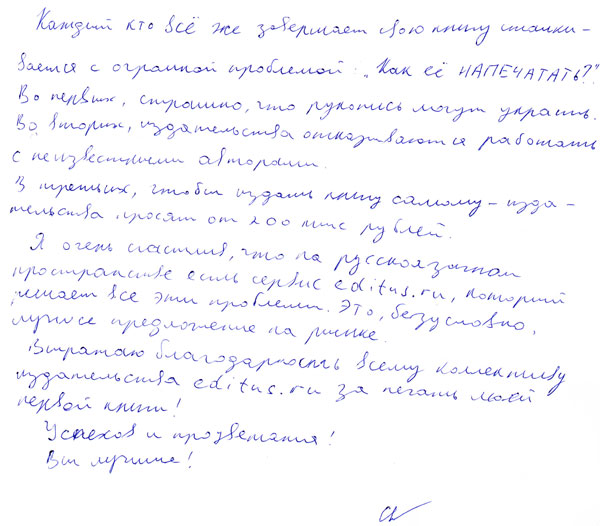 Каждый кто всё же завершает свою книгу сталки-
вается с огромной проблемой: „Как её НАПЕЧАТАТЬ?".
Во первых, страшно, что рукопись могут украсть.
Во вторых, издательства отказываются работать
с неизвестными авторами.
В третьих, чтобы издать книгу самому – изда-
тельства просят от 200 тыс рублей.
Я очень счастлив, что на русскоязычном
пространстве есть сервис editus.ru, который
решает все эти проблемы. Это, безусловно,
лучшее предложение на рынке.
Выражаю благодарность всему коллективу
издательства editus.ru за печать моей
первой книги!
Успехов и процветания!
Вы лучшие!